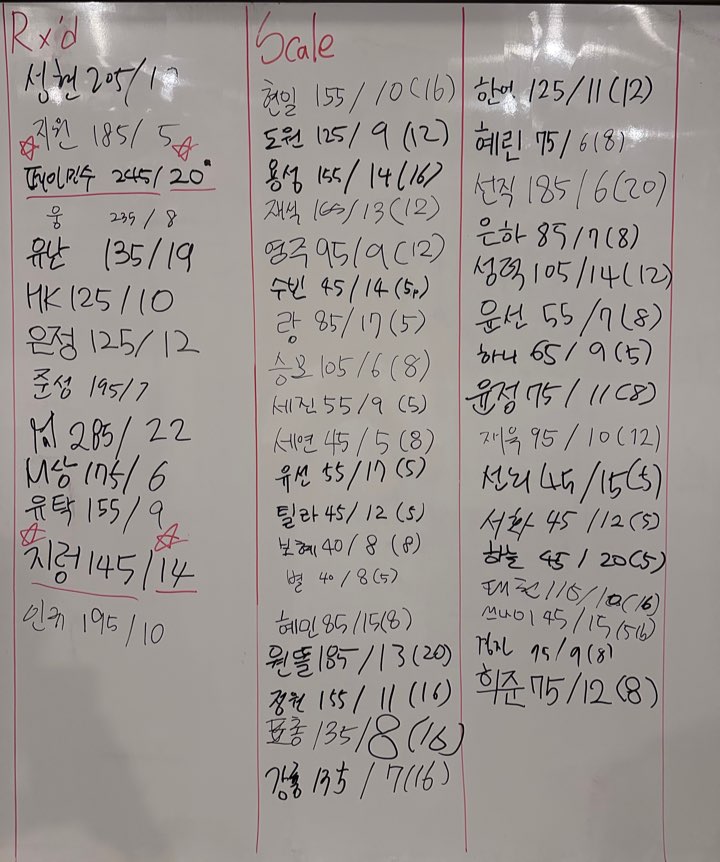 Rx'd
성현 205/1
지원 185/5
245/20
웅 235/8
유난 135/19
HK 125/10
은정 125/12
준성 195/7
285/22
M상 175/6
유탁 155/9
지렁 145/14
195/10
Scale
현일 155/10(16)
도원 125/9(12)
용성 155/14(16)
재석 /13(12)
영주 95/9(12)
수빈 45/14
랑 85/17(5)
105/6(8)
세진 55/9(5)
세연 45/5(8)
유선 55/17(5)
틸라 45/12(5)
보혜 40/8(8)
별 40/8(5)
혜민 85/15(8)
원똘 185/13(20)
정원 155/11(16)
표총 135/8(16)
강룡 135/7(16)
125/11(12)
혜린 75/6(8)
선직 185/6(20)
은하 85/7(8)
성력 105/14(12)
윤선 55/7(8)
하니 65/9(5)
윤정 75/11(8)
재욱 95/10(12)
45/15(5)
서화 45/12(5)
하늘 45/20(5)
(16)
쓰나미 45/15
9(8)
희준 75/12(8)